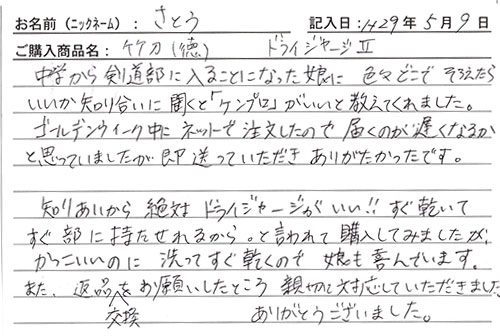 お名前(ニックネーム): さとう 記入日:H29年5月9日
ご購入商品名: 竹刀(徳) ドライジャージⅡ
中学から剣道部に入ることになった娘に 色々どこでそろえたら
いいか知り合いに聞くと「ケンプロ」がいいと教えてくれました。
ゴールデンウィーク中にネットで注文したので届くのが遅くなるか
と思っていましたが即送っていただきありがたかったです。
知りあいから絶対ドライジャージがいい!!すぐ乾いて
すぐ部に持たせれるから。と言われて購入してみましたが、
かっこいいのに洗ってすぐ乾くので娘も喜んでいます。
また、返品をお願いしたところ親切に対応していただきました
交換 ありがとうございました。